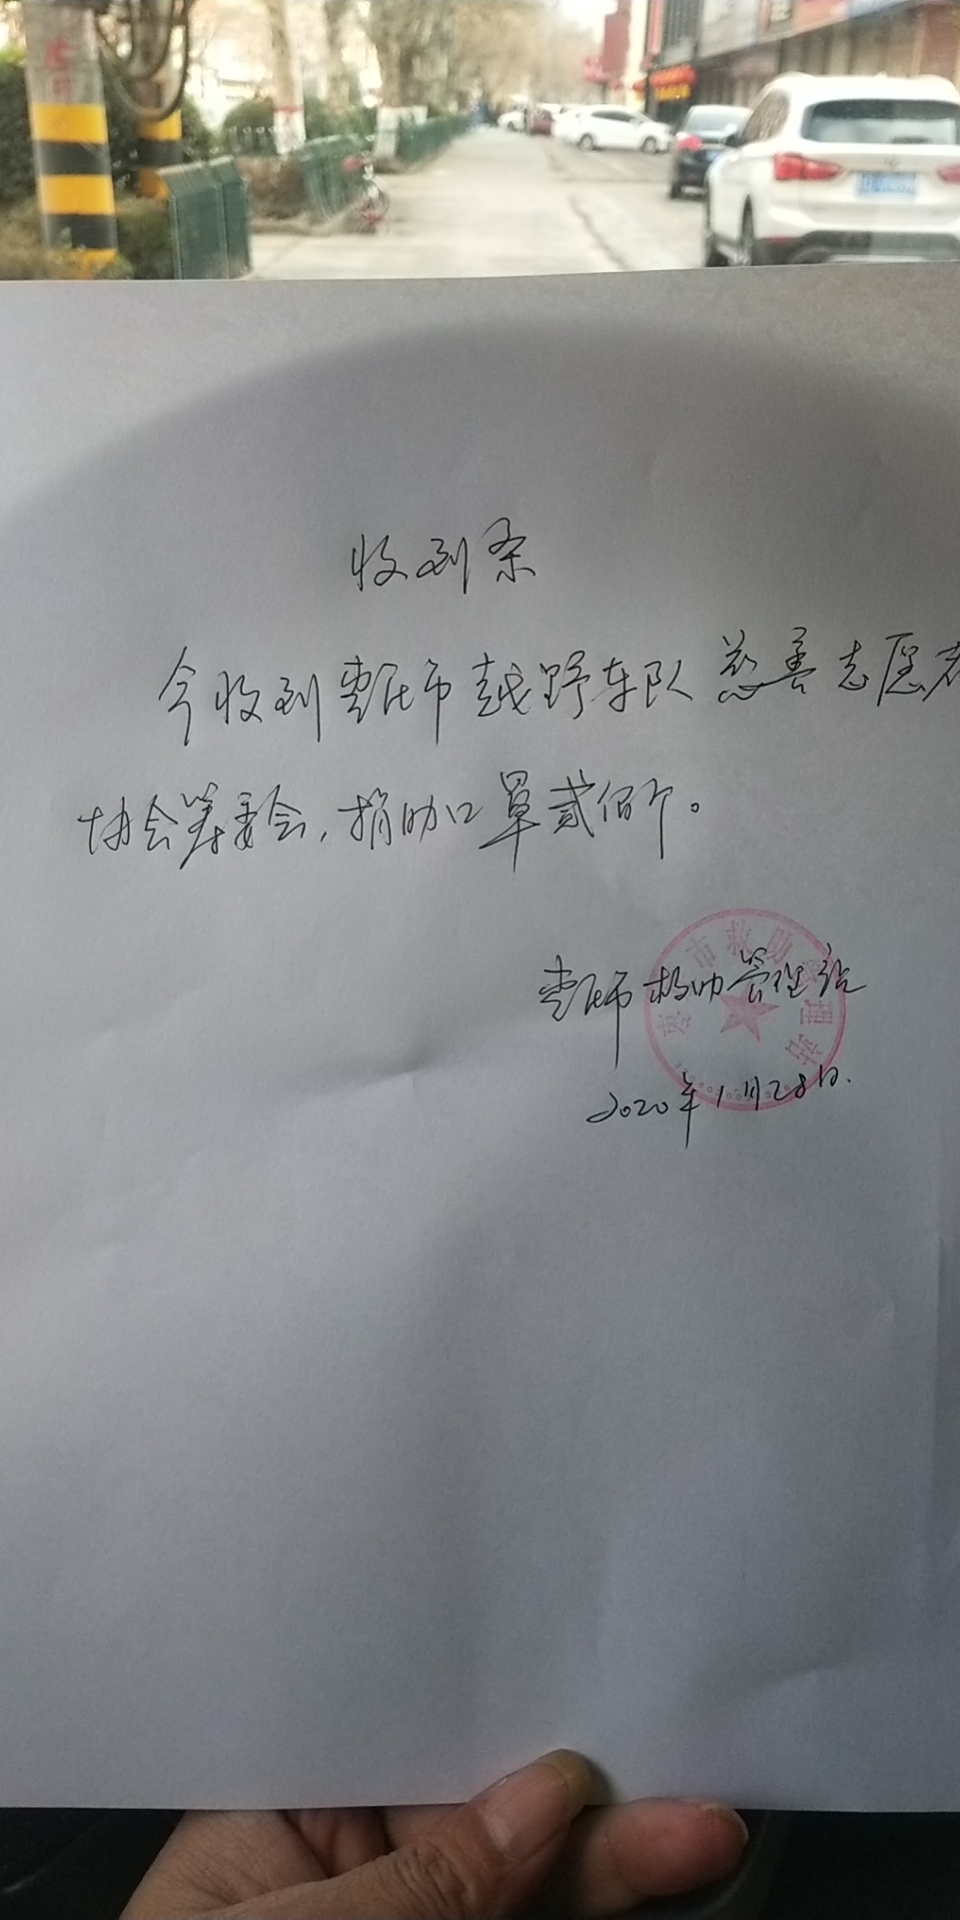 收到条
今收到枣庄市越野车队慈善志愿者
协会筹委会,捐助口罩贰佰个。
枣庄市救助管理站
2020年1月28日.
枣庄市救助管理站